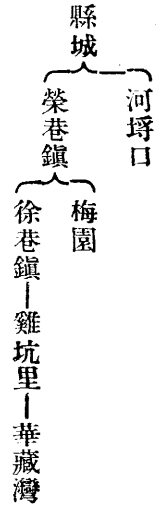 縣城
河埒口
榮巷鎭
梅園
徐巷鎭—雞坑里—華藏灣